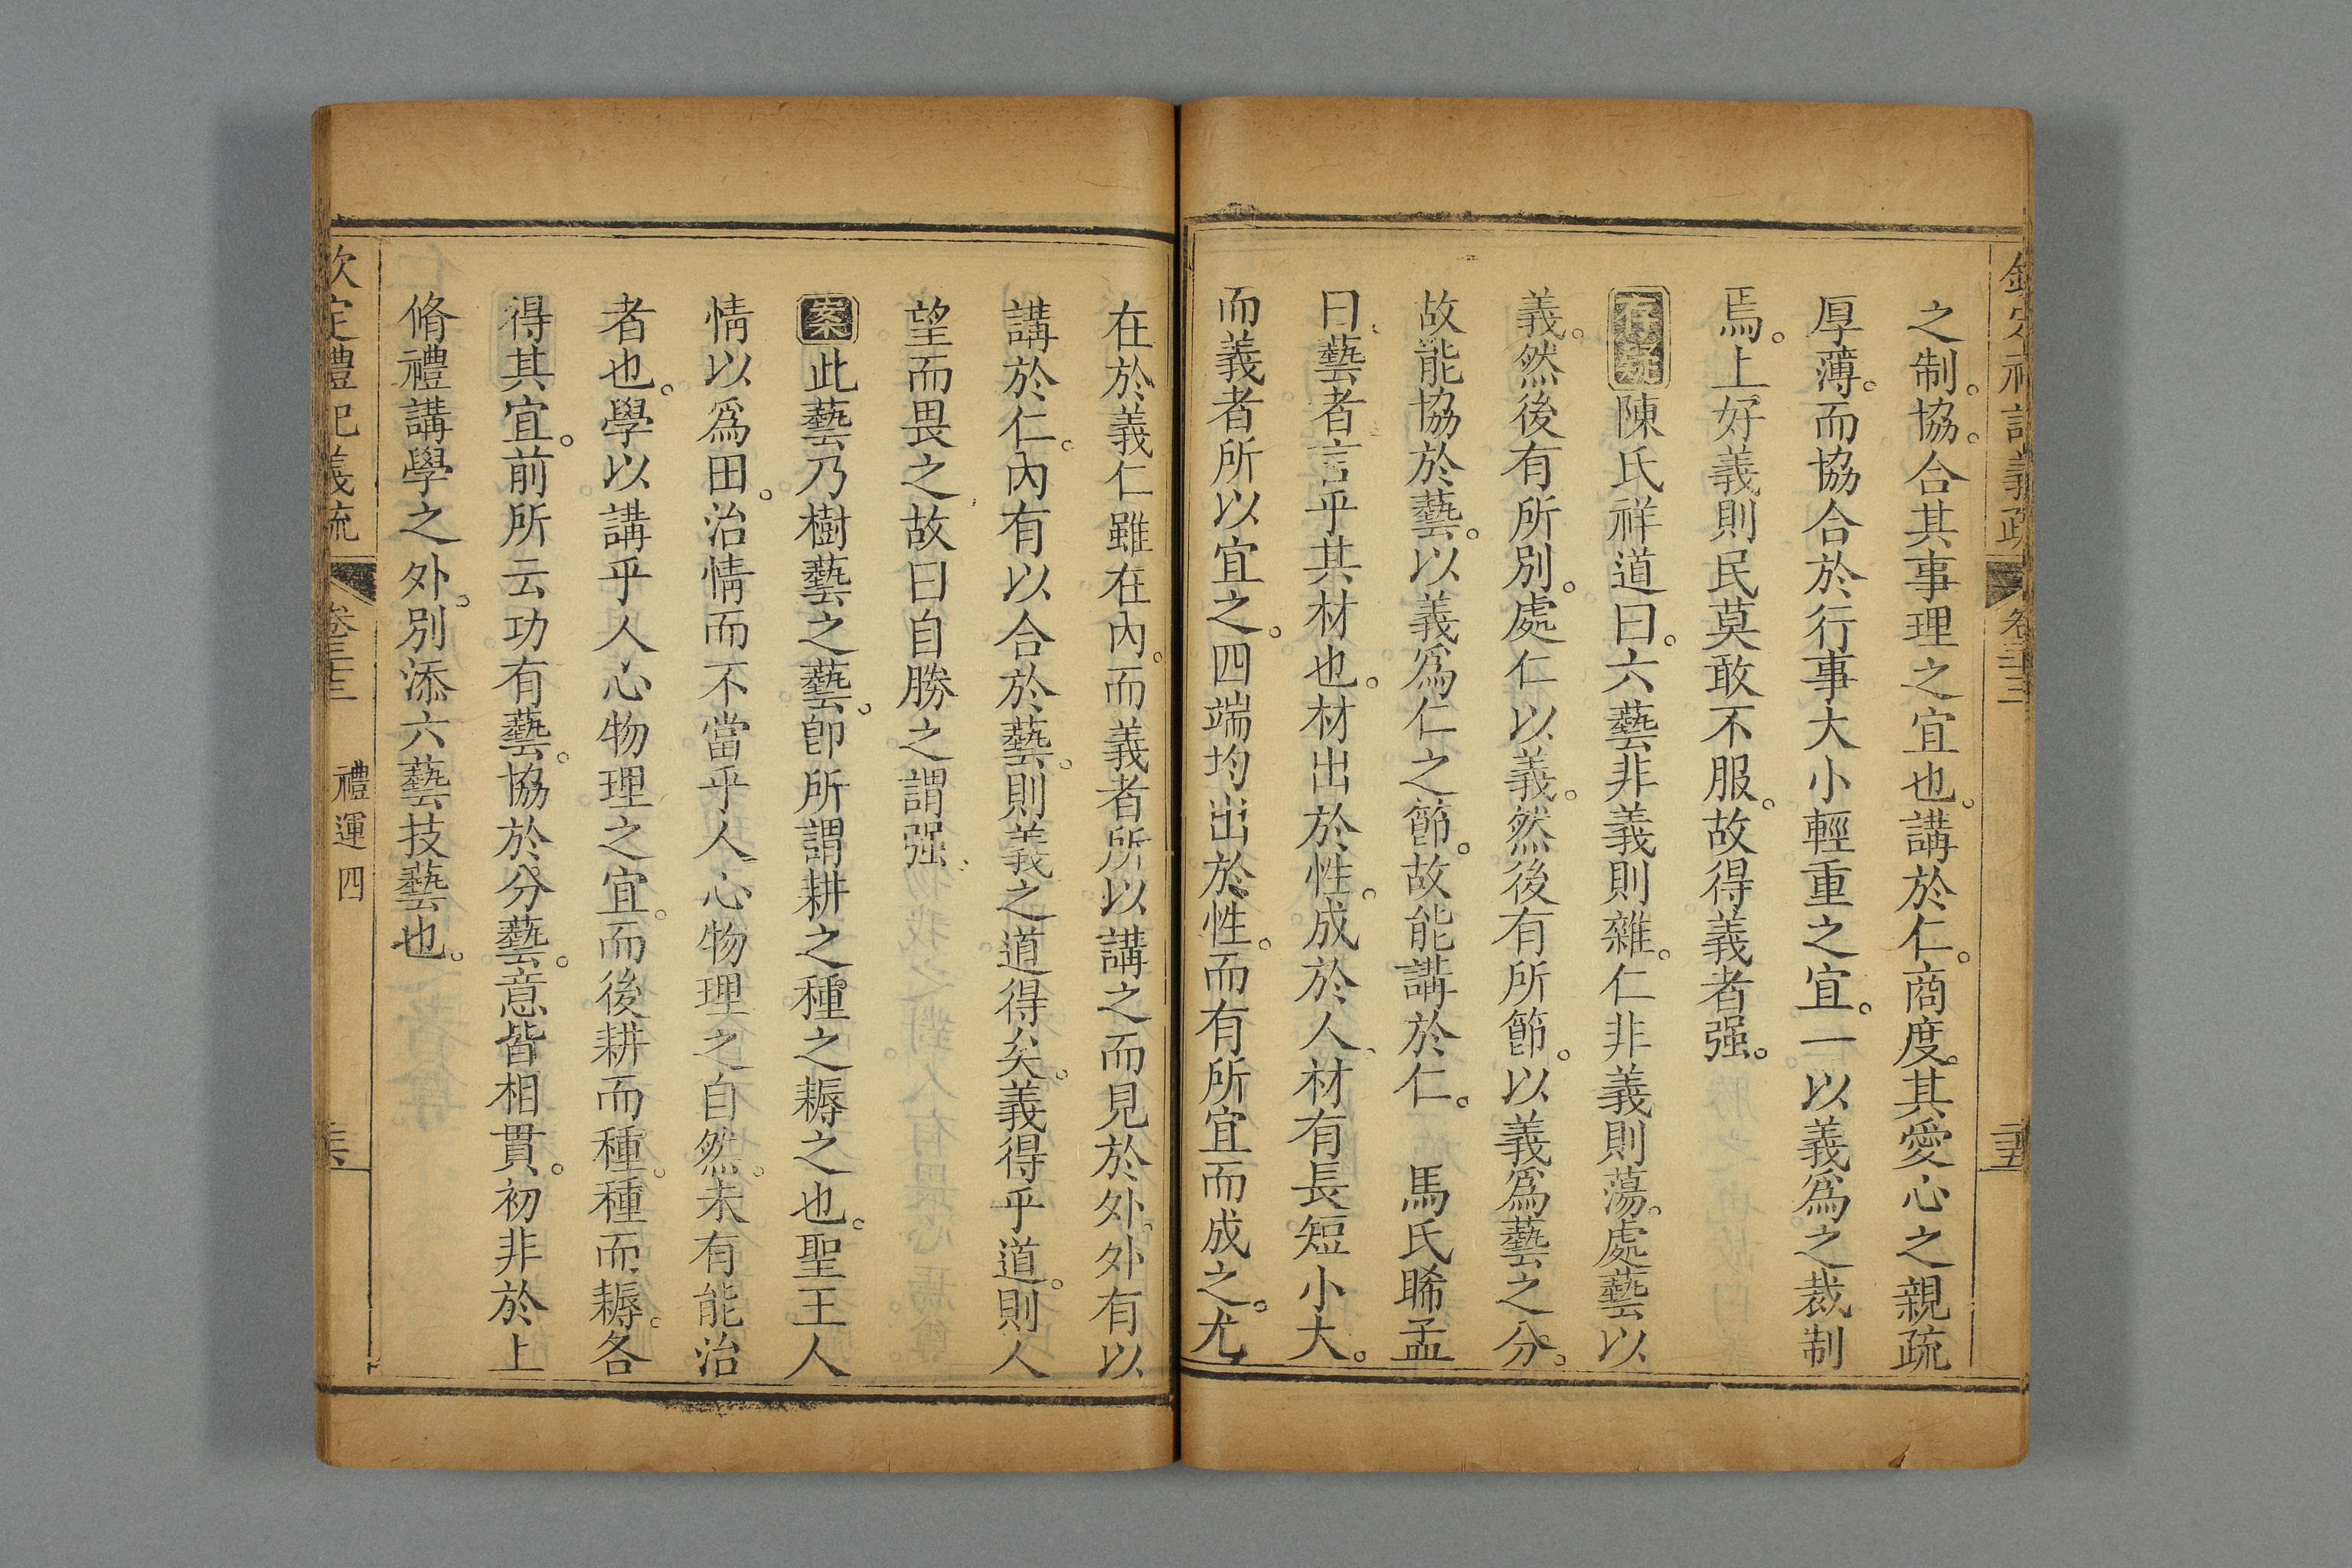 之制。協。合其事理之宜也。講於仁。商度。其愛心之親疏
厚薄。而協合於行事大小輕重之宜。一以義爲之裁制
焉。上好義則民莫敢不服。故得義者强。
存疑陳氏祥道曰。六藝非義則雜。仁非義則蕩。處藝以
義。然後有所別。處仁以義。然後有所節。以義爲藝之分。
故能協於藝。以義爲仁之節。故能講於仁。 馬氏睎孟
曰、藝者言乎其材也。材出於性。成於人、材有長短小大。
而義者所以宜之。四端均出於性。而有所宜而成之。尤
在於義仁雖在內。而義者所以講之而見於外。外有以
講於仁。內有以合於藝。則義之道得矣。義得乎道。則人
望而畏之、故曰自勝之謂强、
案此藝乃樹藝之藝。卽所謂耕之種之耨之也。聖王人
情以爲田。治情而不當乎人心物理之自然。未有能治
者也。學以講乎人心物理之宜。而後耕而種。種而耨。各
得其宜。前所云功有藝。協於分藝。意皆相貫。初非於上
脩禮講學之外。別添六藝技藝也。
欽定禮記義疏 卷三十三 禮運四